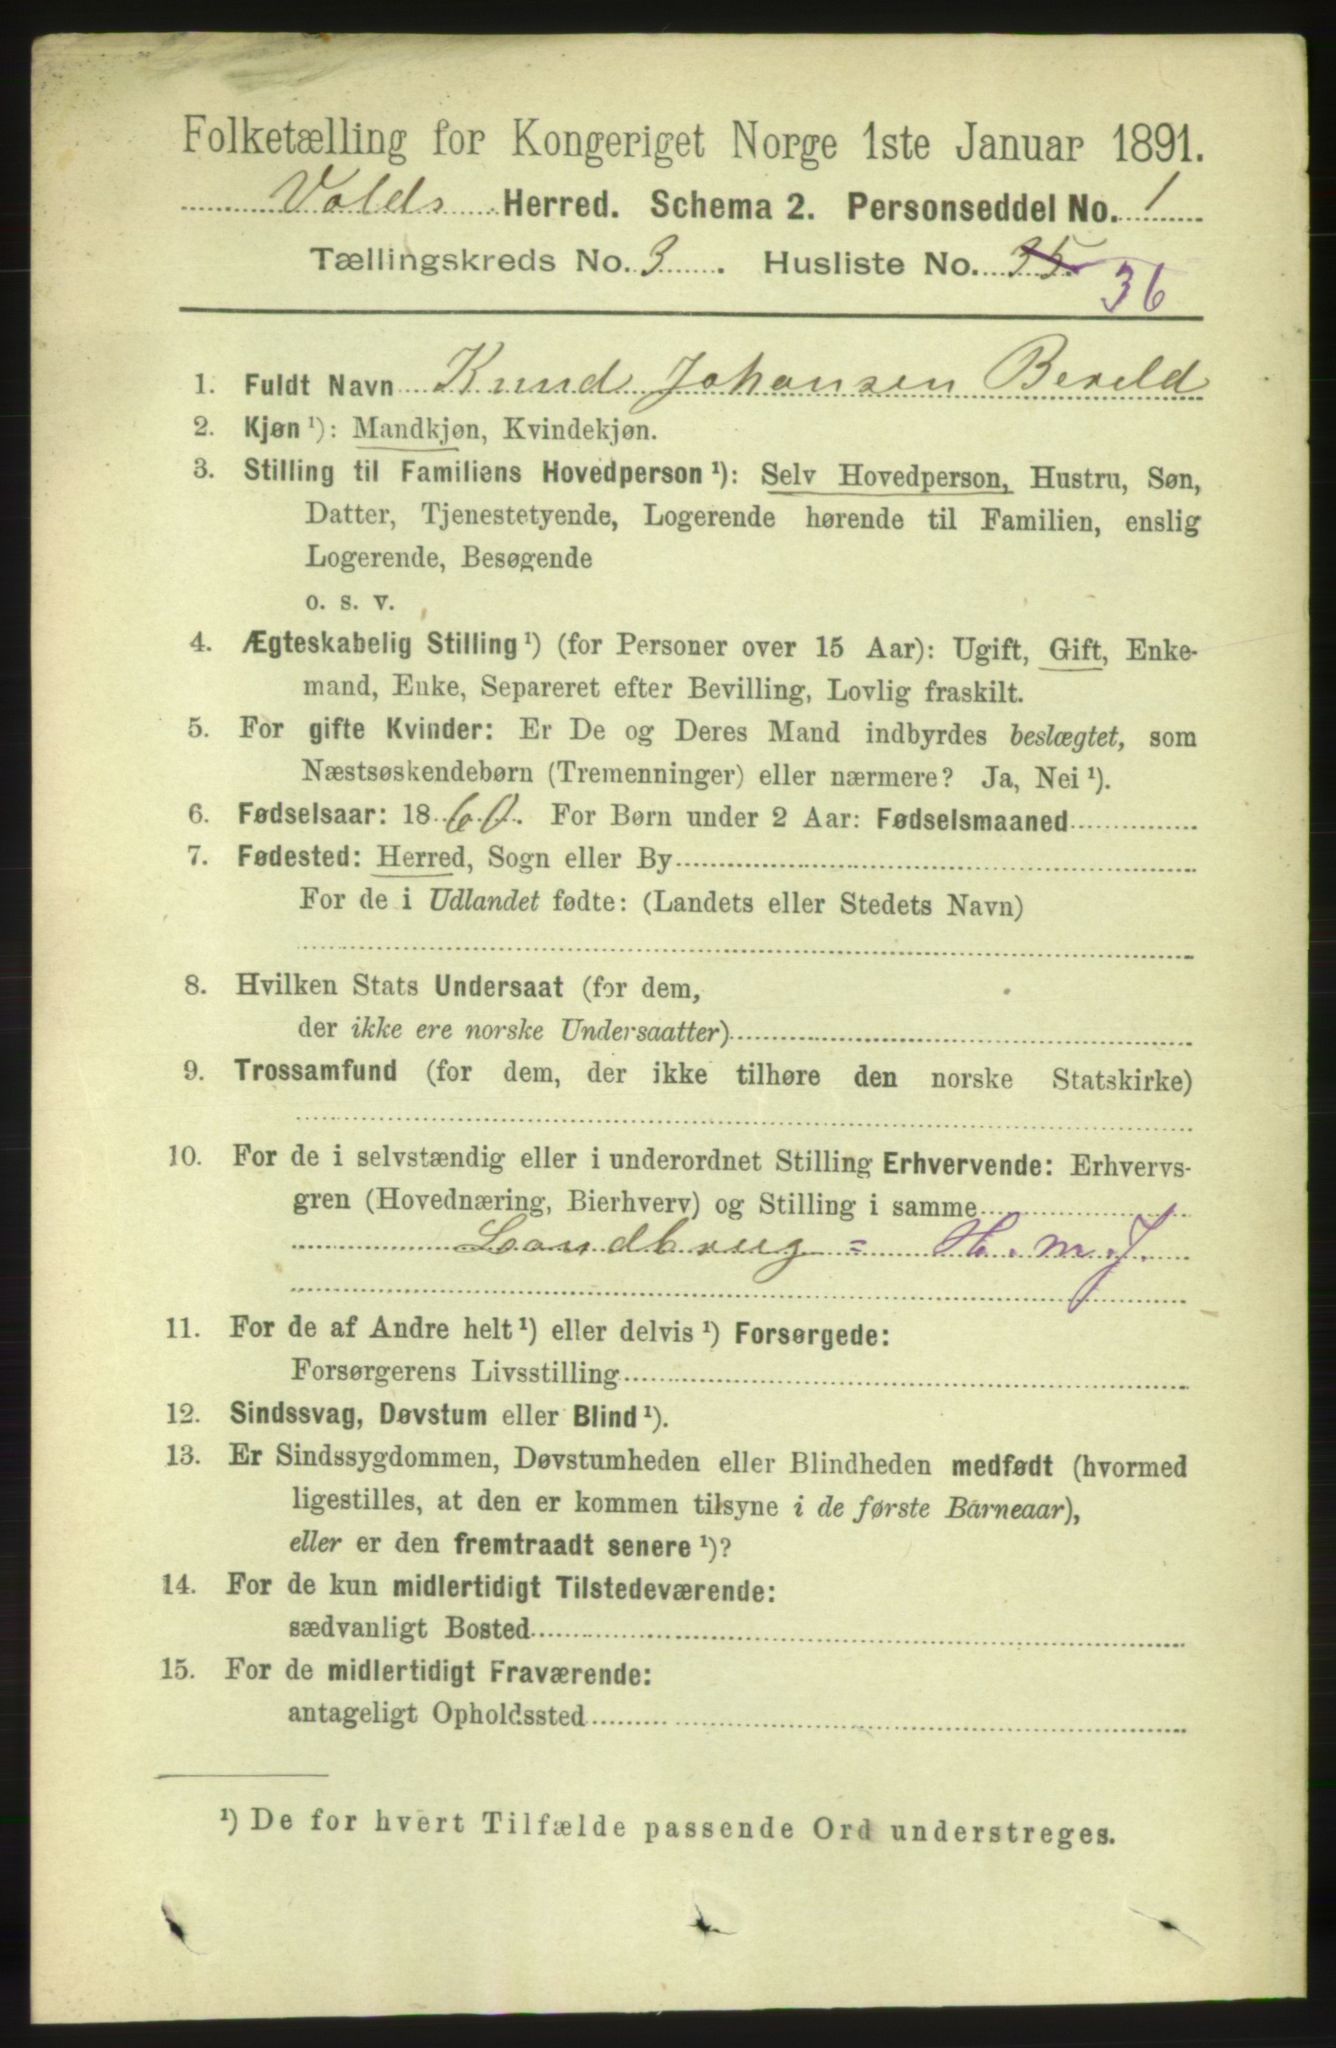 Folketælling for Kongeriget Norge 1ste Januar 1891.
Volds Herred. Schema 2. Personseddel No. 1
Tællingskreds No. 3. Husliste No. 35. 36
1. Fuldt Navn Knud Johansen Bereld
2. Kjøn ¹): Mandkjøn, Kvindekjøn.
3. Stilling til Familiens Hovedperson ¹): Selv Hovedperson, Hustru, Søn,
Datter, Tjenestetyende, Logerende hørende til Familien, enslig
Logerende, Besøgende
o. s. v.
4. Ægteskabelig Stilling ¹) (for Personer over 15 Aar): Ugift, Gift, Enke-
mand, Enke, Separeret efter Bevilling, Lovlig fraskilt.
5. For gifte Kvinder: Er De og Deres Mand indbyrdes beslægtet, som
Næstsøskendebørn (Tremenninger) eller nærmere? Ja, Nei ¹).
6. Fødselsaar: 1860. For Børn under 2 Aar: Fødselsmaaned
7. Fødested: Herred, Sogn eller By
For de i Udlandet fødte: (Landets eller Stedets Navn)
8. Hvilken Stats Undersaat (for dem,
der ikke ere norske Undersaatter)
9. Trossamfund (for dem, der ikke tilhøre den norske Statskirke)
10. For de i selvstændig eller i underordnet Stilling Erhvervende: Erhvervs-
gren (Hovednæring, Bierhverv) og Stilling i samme
Landbrug = H. m. J.
11. For de af Andre helt ¹) eller delvis ¹) Forsørgede:
Forsørgerens Livsstilling
12. Sindssvag, Døvstum eller Blind ¹).
13. Er Sindssygdommen, Døvstumheden eller Blindheden medfødt (hvormed
ligestilles, at den er kommen tilsyne i de første Barneaar),
eller er den fremtraadt senere ¹)?
14. For de kun midlertidigt Tilstedeværende:
sædvanligt Bosted
15. For de midlertidigt Fraværende:
antageligt Opholdssted
¹) De for hvert Tilfælde passende Ord understreges.